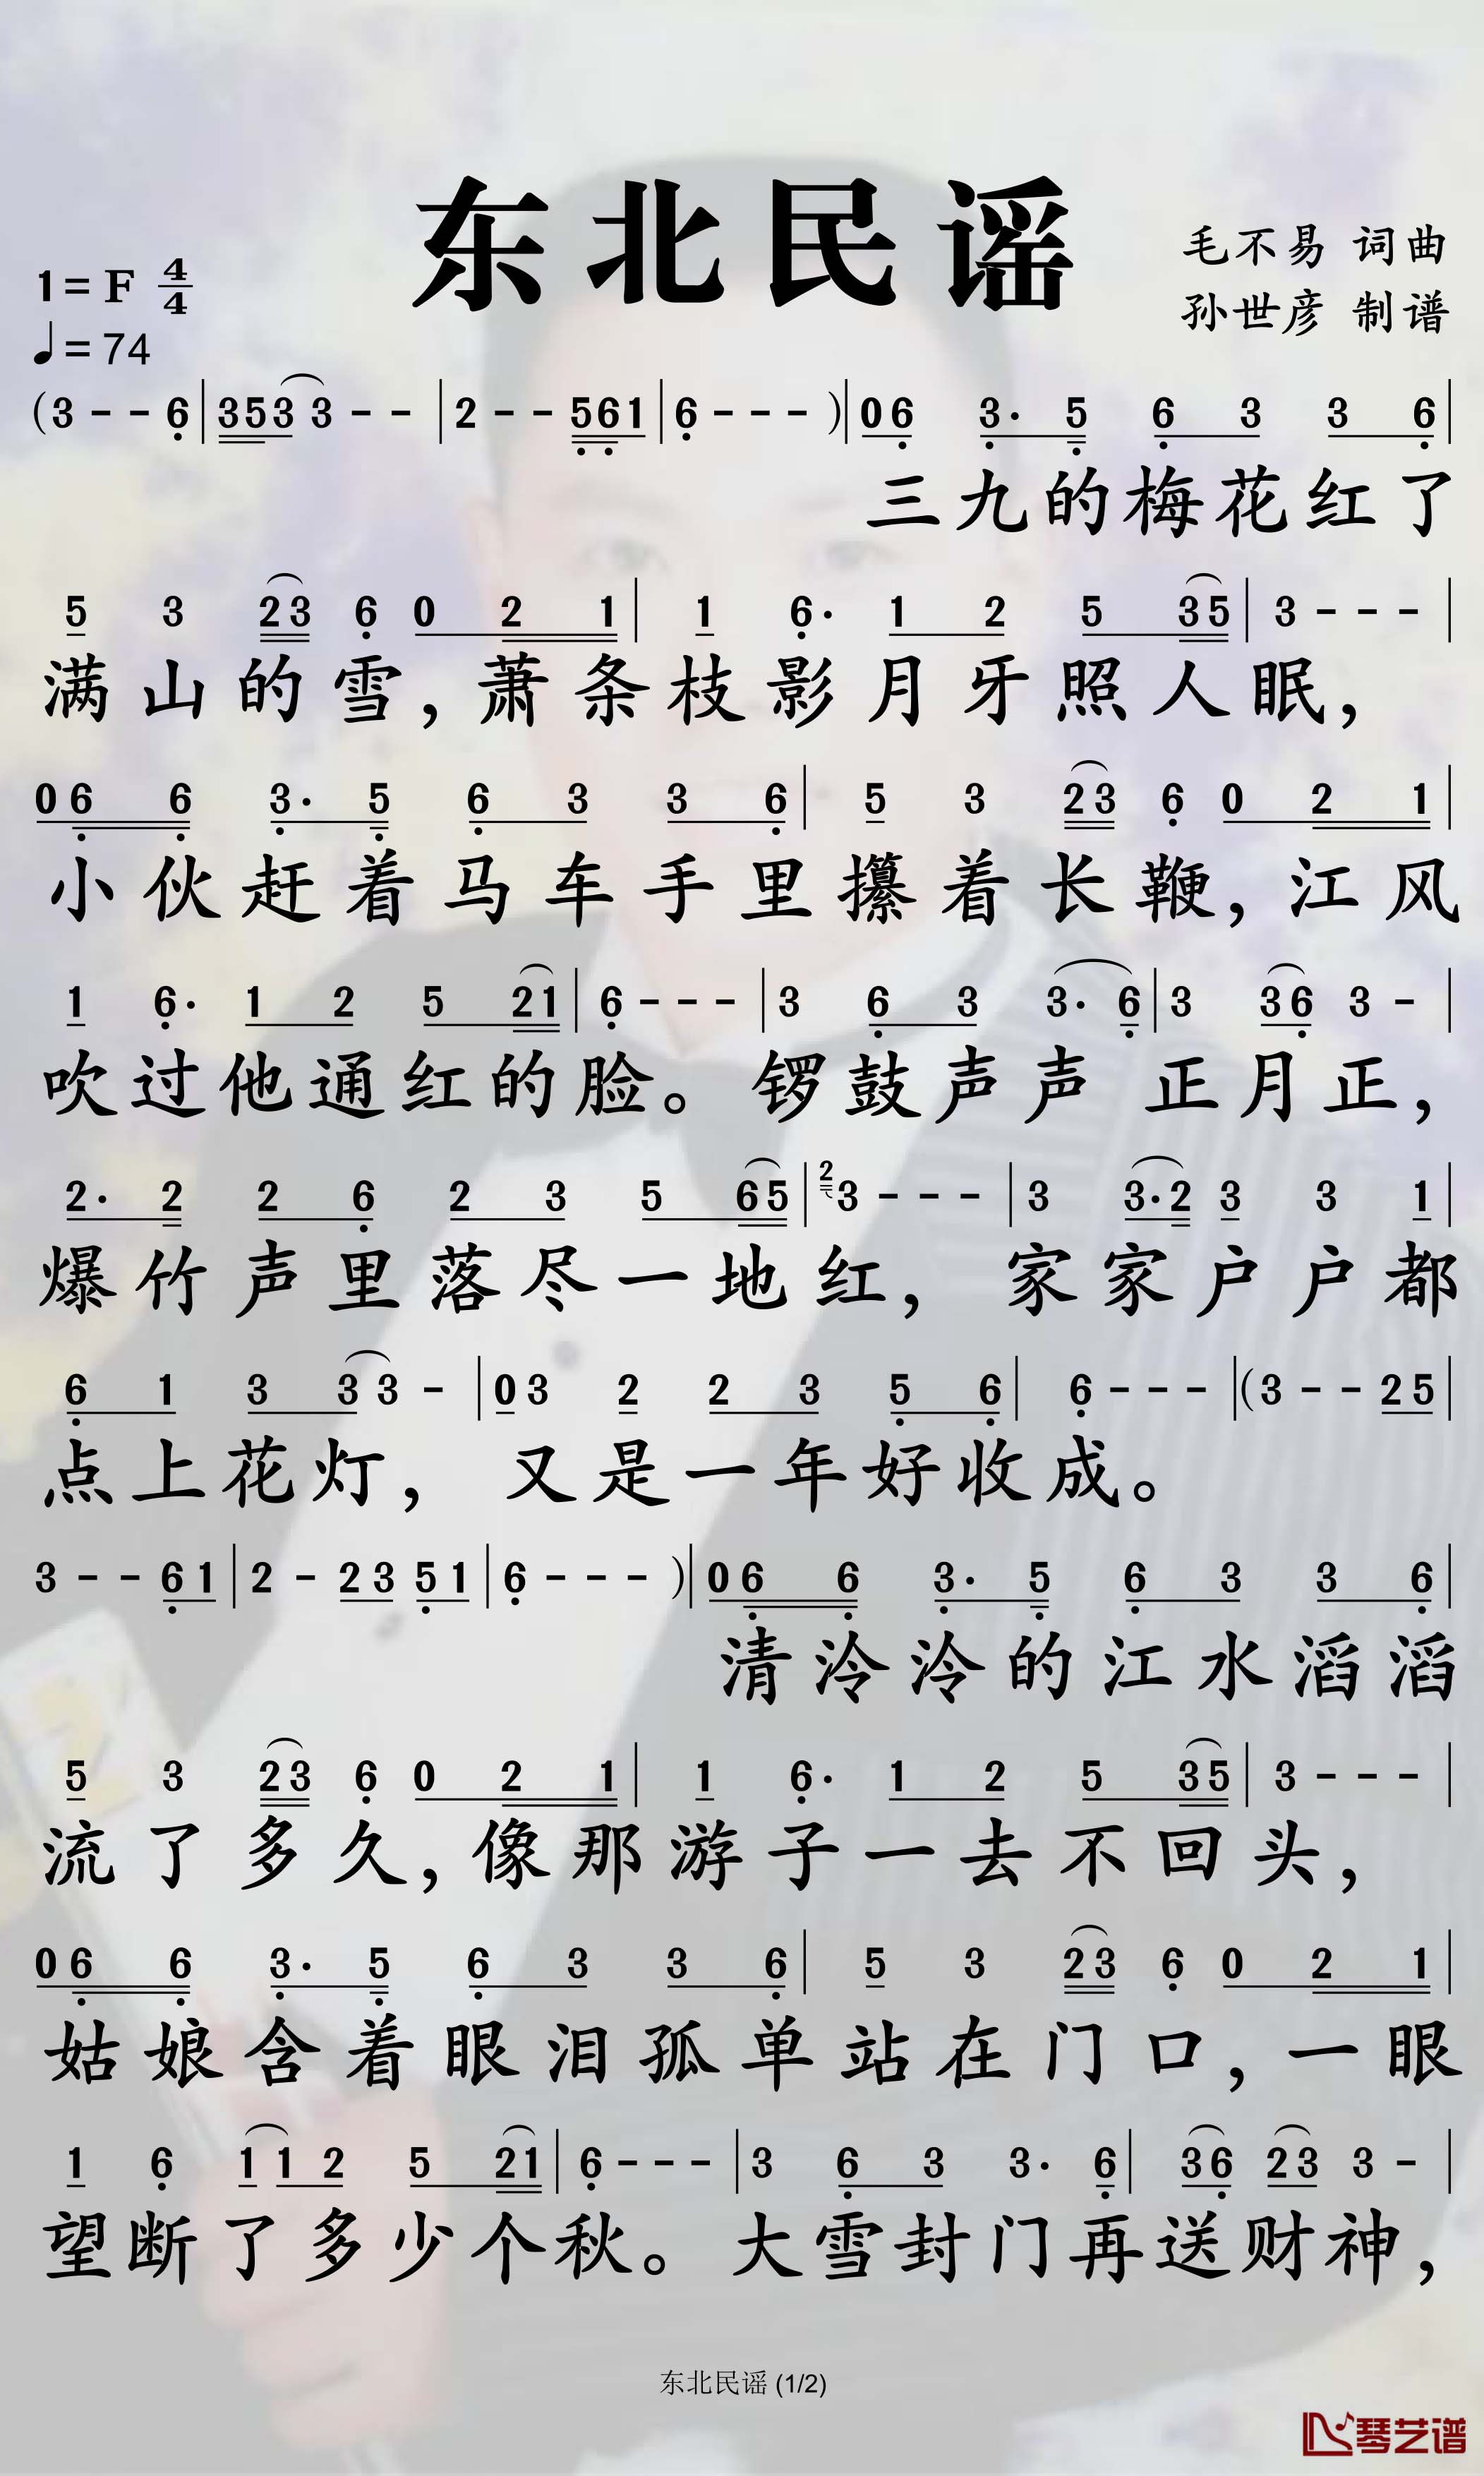 东北民谣
毛不易 词曲
孙世彦 制谱
1= F 4/4
♩= 74
(3 - - 6 | 353 3 - - | 2 - - 561 | 6 - - - )| 06 3· 5 6 3 3 6 |
三九的梅花红了
5 3 23 6 0 2 1 | 1 6· 1 2 5 35 | 3 - - - |
满山的雪，萧条枝影月牙照人眠，
06 6 3· 5 6 3 3 6 | 5 3 23 6 0 2 1 |
小伙赶着马车手里攥着长鞭，江风
1 6· 1 2 5 21 | 6 - - - | 3 6 3 3· 6 | 3 36 3 - |
吹过他通红的脸。锣鼓声声 正月正，
2· 2 2 6 2 3 5 65 | 2 3 - - - | 3 3·2 3 3 1 |
爆竹声里落尽一地红，家家户户都
6 1 3 3 3 - | 03 2 2 3 5 6 | 6 - - - |(3 - - 25 |
点上花灯，又是一年好收成。
3 - - 61 | 2 - 23 51 | 6 - - - )| 06 6 3· 5 6 3 3 6 |
清泠泠的江水滔滔
5 3 23 6 0 2 1 | 1 6· 1 2 5 35 | 3 - - - |
流了多久，像那游子一去不回头，
06 6 3· 5 6 3 3 6 | 5 3 23 6 0 2 1 |
姑娘含着眼泪孤单站在门口，一眼
1 6 1 1 2 5 21 | 6 - - - | 3 6 3 3· 6 | 36 23 3 - |
望断了多少个秋。大雪封门再送财神，
东北民谣 (1/2)
琴艺谱